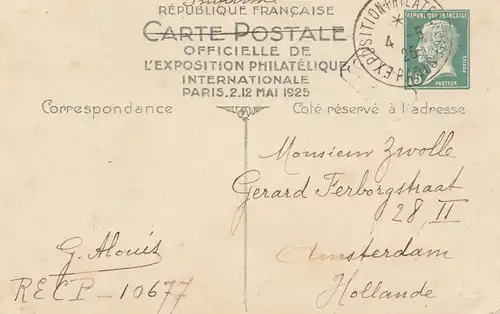 RÉPUBLIQUE FRANÇAISE
CARTE POSTALE
OFFICIELLE DE
L'EXPOSITION PHILATÉLIQUE
INTERNATIONALE
PARIS.2.12 MAI 1925
REPUBLIQUE FRANÇAISE
POSTES
15
PASTEUR
Correspondance
Coté réservé à l'adresse
Monsieur Zwolle
Gerard Ferborgstraat
28 II
Amsterdam
Hollande
G. Alouis
RECP - 10677